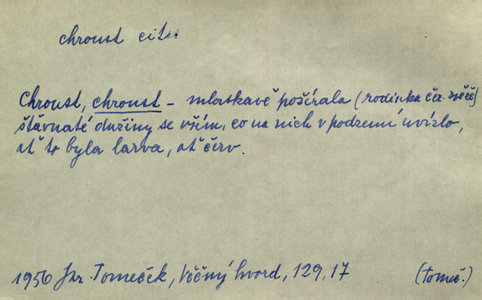 chroust cit.
Chroust, chroust – mlaskavě požírala (rodinka
šťavnaté dužiny se vším, co na nich v podzemí uvízlo,
ať to byla larva, ať červ.
1956 Jar. Tomeček, Věčný hvozd, 129, 17 (Tomeč.)